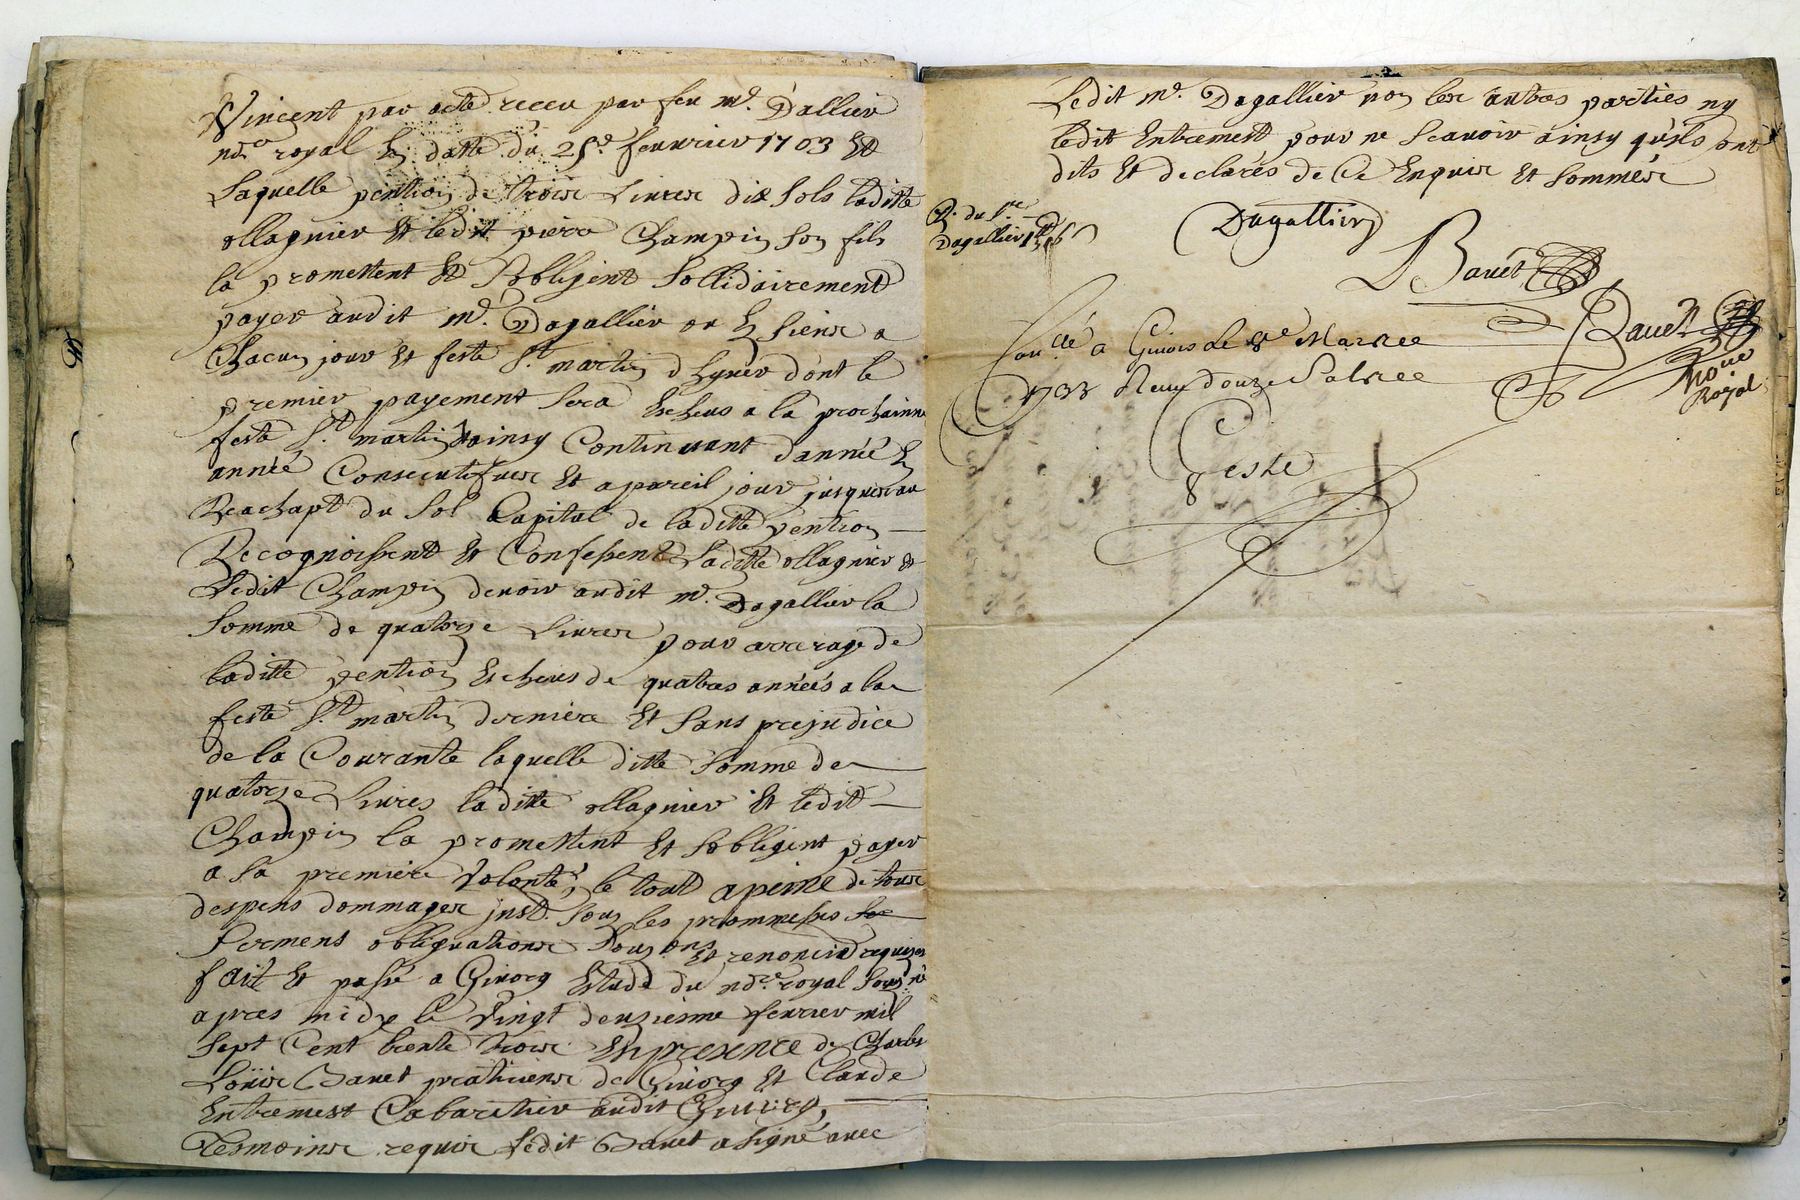 Vincent par acte receu par feu me. Dallier
nore royal En datte du 25e. feuvrier 1703 Et
Laquelle pention de trois Livres dix sols laditte
ollagnier Et ledit pierre Champin son fils
la promettent Et Sobligent Sollidairement
payer audit me. Dagallier ou Es siens a
Chacun jour Et feste St. martin dhyver dont le
premier payement sera Escheus a la prochainne
feste St. martin Et ainsy Continuant dannée En
année Consecutifues Et a pareil jour jusques au
Reachapt du Sol Capital de laditte pention
Recognoissent Et Confessent laditte ollagnier Et
ledit Champin devoir audit me. Dagallier la
somme de quatorze Livres pour arrerage de
laditte pention Escheus de quatres années a la
feste St. martin derniere Et sans prejudice
de la Courante laquelle ditte somme de
quatorze Livres laditte ollagnier Et ledit
Champin la promettent Et sobligent payer
a sa premiere Volonté, le tout a peine de tous
despens dommages jnst. sous les prommesses
sermens obligations Et renonciād requises
fait Et passé a Givorg Estude du nore. royal souzné
apres midy le Vingt deuzieme feuvrier mil
sept Cent trente trois En presence de Charles
Loüis Bauet praticiens de Givorg Et Claude
Entremest Cabaretier audit Givorg,
Tesmoins requis Ledit Bauet a signé avec
Ledit me. Dagallier non les autres parties ny
ledit Entremest pour ne scavoir ainsy quils ont
dits Et declarés de Ce Enquis Et sommés
du sre
Dagallier
Dagallier
Bauet
Bauet
nore
Royal
Conllé a Givors le 8e Mars
1733 Reçu douze sols
Geste